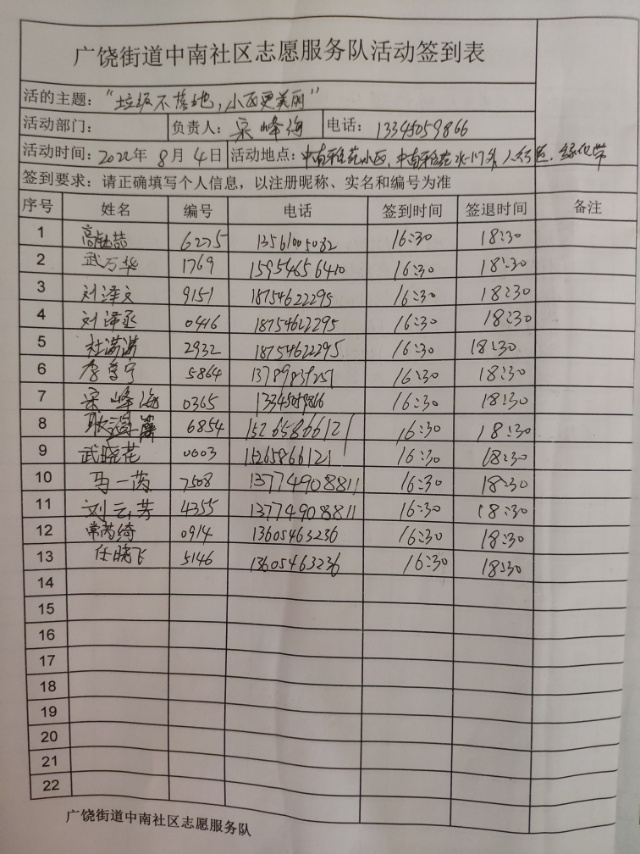 广饶街道中南社区志愿服务队活动签到表
活的主题：“垃圾不落地，小区更美丽”
活动部门： 负责人：宋峰海 电话：13345059866
活动时间：2022年8月4日 活动地点：中南 小区，中南 绿化带
签到要求：请正确填写个人信息，以注册昵称、实名和编号为准
序号 姓名 编号 电话 签到时间 签退时间 备注
1 6275 13561005032 16:30 18:30
2 武万华 1769 15954656410 16:30 18:30
3 刘泽文 9151 18754622295 16:30 18:30
4 刘泽丞 0416 18754622295 16:30 18:30
5 杜满满 2932 18754622295 16:30 18:30
6 5864 13789839251 16:30 18:30
7 宋峰海 0365 13345059866 16:30 18:30
8 6854 15265866121 16:30 18:30
9 武晓花 0603 15265866121 16:30 18:30
10 马一茵 7508 13774908811 16:30 18:30
11 刘云芳 4355 13774908811 16:30 18:30
12 0914 13605463236 16:30 18:30
13 任晓飞 5146 13605463236 16:30 18:30
14
15
16
17
18
19
20
21
22
广饶街道中南社区志愿服务队